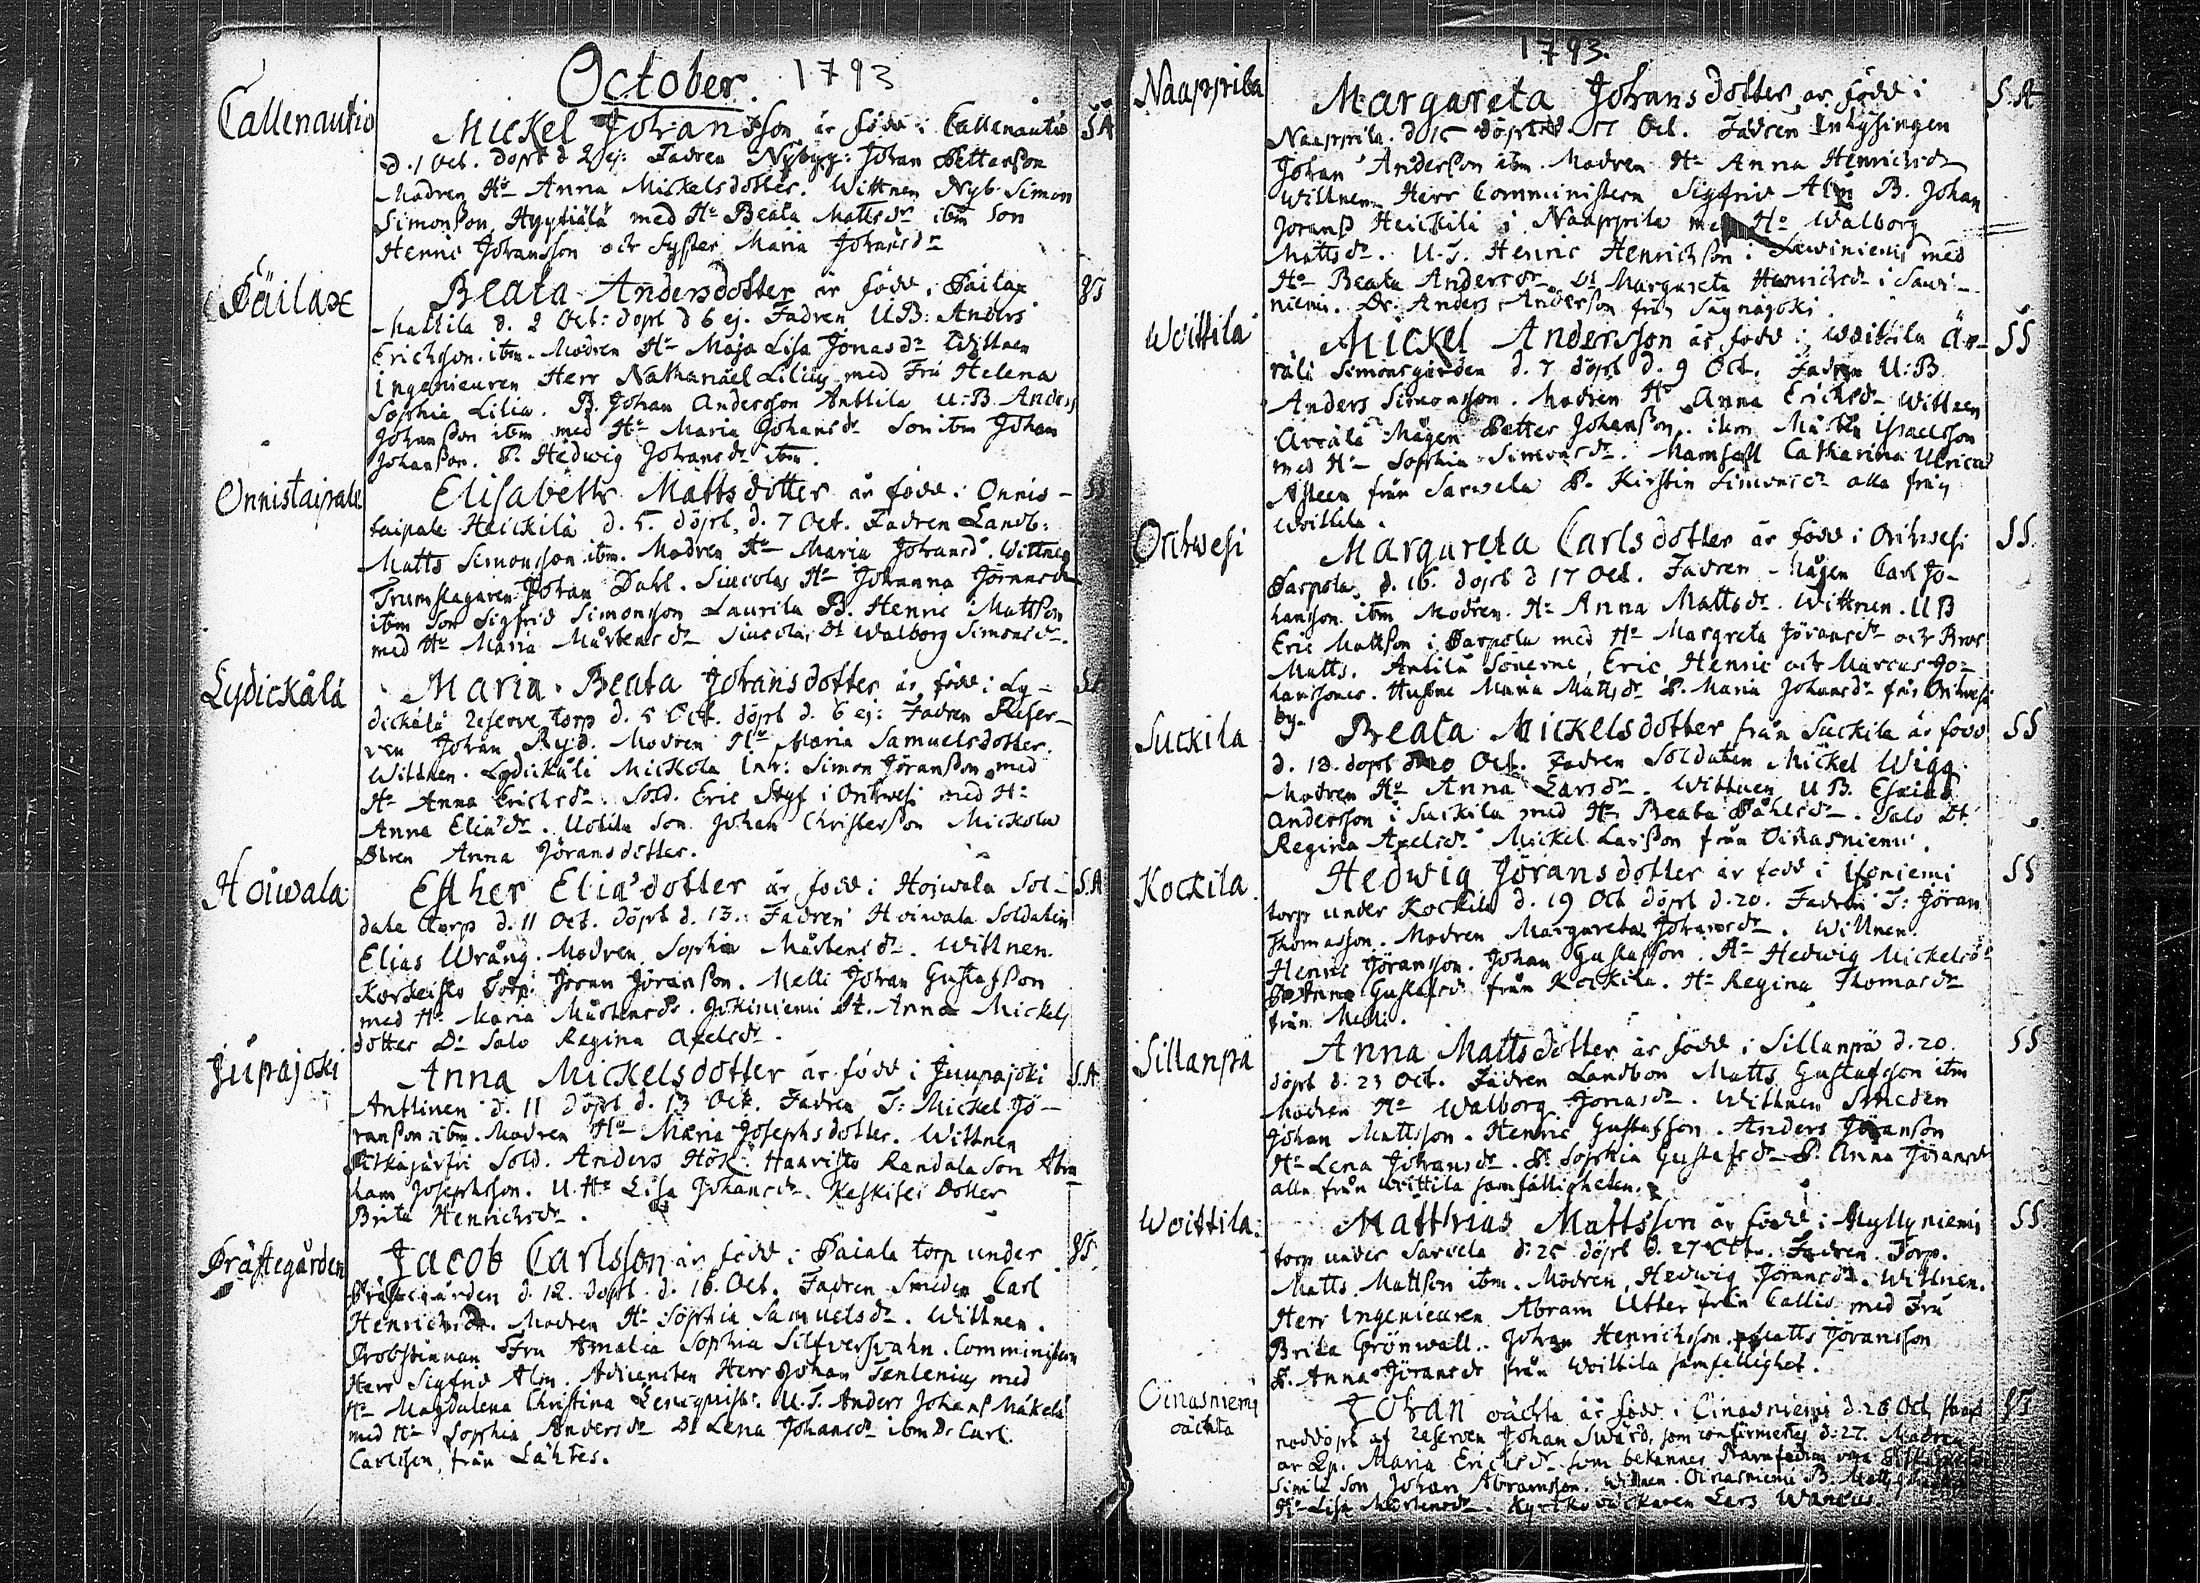 October. 1793
Callenautio
Mickel Johansson är född i Callenautio SA
d. 1 Oct. döpt d 2 ej: Fadren Nybyg: Johan Petterßon
Modren Hu Anna Mickelsdotter. Wittnen Nyb. Simon
Simonßon Hyytiälä med Hu Beata Mattsdr ibm Son
Henric Johansson och Syster Maria Johansdr
Päilax
Beata Andersdotter är född i Pailax
Mattila d. 2 Oct: döpt d 6 ej. Fadren U.B: Anders
Ericksson ibm. Modren Hu Maja Lisa Jonasdr Wittnen
Ingenieuren Herr Nathanael Lilius med Fru Helena
Sophia Lilia. B. Johan Andersson Anttila U:B. Anders
Johanßon ibm med Hu Maria Johansdr Son ibm Johan
Johanßon. P. Hedwig Johansdr ibm.
Onnistaipale
Elisabeth Mattsdotter är född i Onnis- SS
taipale Heickilä d. 5. döpt d. 7 Oct. Fadren Landb:
Matts Simonsson ibm. Modren Hu Maria Johansdr. Wittnen
Trumslagaren Johan Dahl. Siucola Hu Johanna Jöransdr
ibm Son Sigfrid Simonsson Laurila B. Henric Mattßon
med Hu Maria Mårtensdr Siucola Dr Walborg Simonsdr.
Lydickälä
Maria Beata Johansdotter är född i Ly-
dickälä Reserve torp d. 5 Oct. döpt d. 6 ej: Fadren Reser-
ven Johan Ryd. Modren Hu Maria Samuelsdotter.
Wittnen. Lydickäli Mickola Inh: Simon Jöranßon med
Hu Anna Ericksdr. Sold. Eric Styf i Orihwesi med Hu
Anna Eliædr. Uotila Son Johan Christerßon Mickola
Dtren Anna Jöransdotter.
Hoiwala
Esther Eliædotter är född i Hoiwala Sol- S.A
date torp d. 11 Oct. döpt d. 13. Fadren Hoiwala Soldaten
Elias Wrång. Modren Sophia Mårtensdr. Wittnen.
Korkeisto Torp: Jöran Jöranßon. Melli Johan Gustafßon
med Hu Maria Mårtensdr. Jokiniemi Dt. Anna Mickels
dotter Dr Salo Regina Axelsdr.
Juupajoki
Anna Mickelsdotter är född i Juupajoki S.A
Anttinen d. 11 döpt d. 13 Oct. Fadren T: Mickel Jö-
ranßon ibm. Modren Hu Maria Josephsdotter. Wittnen
Pitkäjärfvi Sold. Anders Hök. Haavisto Randala Son Abra
ham Josephsson. U. Hu Lisa Johansdr. Keskisei Dotter
Brita Henricksdr.
Prästegården
Jacob Carlsson är född i Paiala torp under
Prästegården d. 12. döpt d. 16. Oct. Fadren Smeden Carl
Henricks Modren Hu Sophia Samuelsdr. Wittnen.
Probstinnan Fru Amalia Sophia Silfversvahn. Comministern
Herr Sigfrid Alm. Adjuncten Herr Johan Tenlenius med
Hu Magdalena Christina Lenqvist. U.T. Anders Johanß Mäkelä
med Hu Sophia Andersdr Dr Lena Johansdr ibm Dr Carl
Carlsson från Lähtes.
1793.
Naapprila
Margareta Johansdotter är född i S.A
Naapprila. d. 15 döpt d 17 Oct. Fadren Inhysingen
Johan Anderßon ibm. Modren Hu Anna Henricksdr
Wittnen Herr Comministern Sigfrid Alm B. Johan
Joranß Heickilä i Naapprila med Hu Walborg
Mattsdr. U.T. Henric Henrichßon. Sawiniemi med
Hu Beata Andersdr Dt Margareta Henricksdr i Sawi-
niemi. Dr. Anders Anderßon från Säynäjoki.
Woittila
Mickel Andersson är född i Woittila Är- SS
räli Simonsgården d. 7 döpt d. 9 Oct. Fadren U:B
Anders Simonsson. Modren Hu Anna Ericksdr Wittnen
Ärrälä Mågen Petter Johanßon, ibm Mårten Israelsson
med Hu Sophia Simonsdr. Mamsell Catharina Ulrica
från Sarwela P. Kirstin Simonsdr alla från
Woittila.
Orihwesi
Margareta Carlsdotter är född i Orihwesi SS.
Parpola, d. 16. döpt d 17 Oct. Fadren Mågen Carl Jo-
hansson ibm Modren. Hu Anna Mattsdr. Wittnen. UB
Eric Mattßon i Parpola med Hu Margreta Jöransdr och Bror
Matts. Antila Sönerne, Eric, Henric och Marcus Jo-
hanssöner. Hustru Maria Mattsdr P. Maria Johansdr från Orihwesi
by.
Suckila
Beata Mickelsdotter från Suckila är född SS
d. 18. döpt d 20 Oct. Fadren Soldaten Mickel Wigg.
Modren Hu Anna Larsdr. Wittnen UB. Esaias
Andersson i Suckila med Hu Beata Påhlsdr. Salo Dt.
Regina Axelsdr Mickel Larßon från Oinasniemi.
Kockila.
Hedwig Jöransdotter är född i Isoniemi SS
torp under Kockila d. 19 Oct döpt d. 20. Fadren T: Jöran
Thomasson. Modren Margareta Johansdr. Wittnen.
Henric Jöransson. Johan Gustafsson. Hu Hedwig Mickelsdr
P. Anna Gustafsdr från Kockila. Hu Regina Thomasdr
från Melli.
Sillanpä
Anna Mattsdotter är född i Sillanpä d. 20. SS
döpt d. 23 Oct. Fadren Landbon Matts Gustafsson ibm
Modren Hu Walborg Jonasdr. Wittnen Smeden
Johan Mattsson. Henric Gustafsson. Anders Jöranßon
Hu Lena Johansdr. P. Sophia Gustafsdr P. Anna Jöransdr
alla från Woittila samfälligheten.
Woittila.
Matthias Mattsson är född i Myllyniemi SS
torp under Sarvela d: 25 döpt d. 27 Oct. Fadren Torp.
Matts Mattßon ibm. Modren Hedwig Jöransdr. Wittnen.
Herr Ingenieuren Abram Utter från Callis med Fru
Brita Grönwall. Johan Henricksson. Matts Jöransson
P. Anna Jöransdr från Woittila samfellighet.
Oinasniemi
oächta
Johan oächta är född i Oinasniemi d. 26 Oct.
nöddöpt af Reserven Johan Swärd, som confirmertes d: 27. Modren
är Qp. Maria Ericksdr som bekänner Barnfadren vara
Simila Son Johan Abramsson. Wittnen. Oinasniemi B. Matts
Hu Lisa Mårtensdr. Kyrkowäckaren Lars Wanæus.